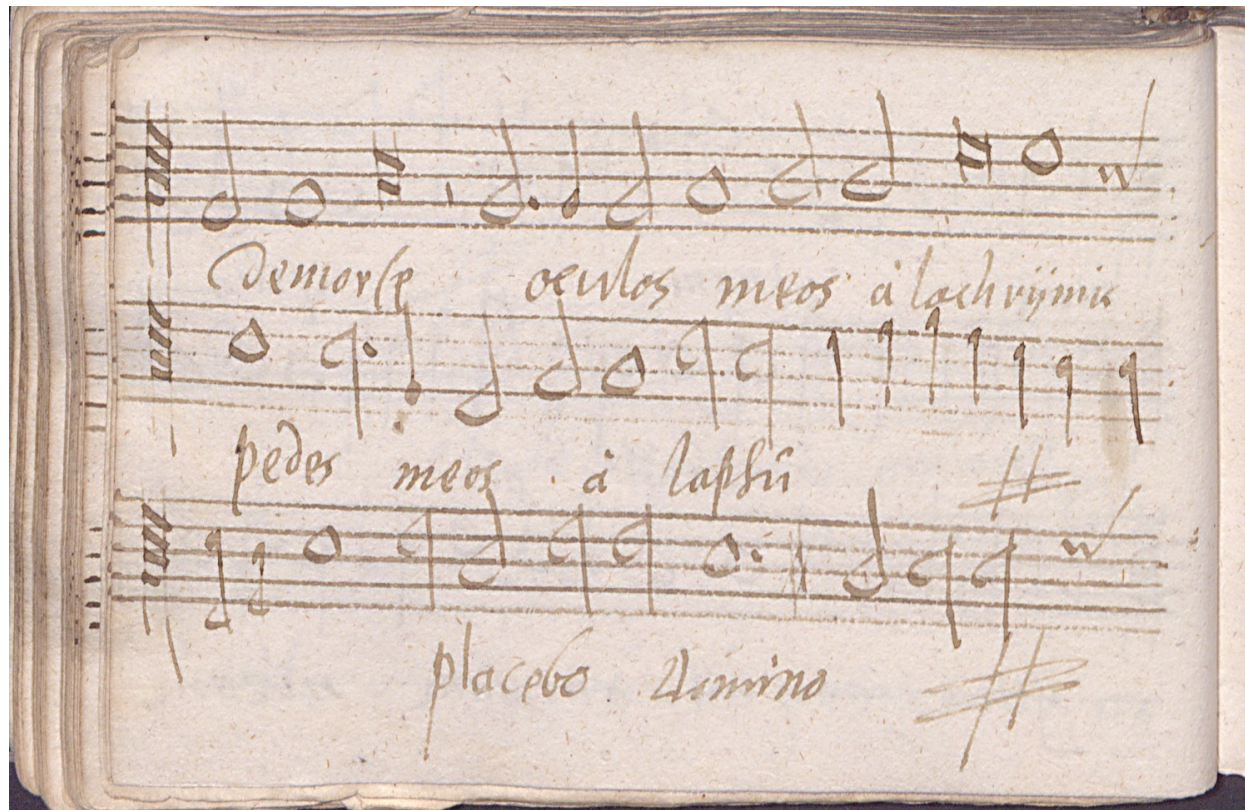 demorse oculos meos à lachrijmis
pedes meos à lapsū
placebo domino